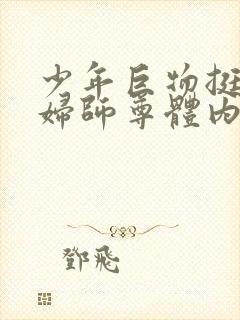 少年巨物挺
婦師尊體內
鄧飛